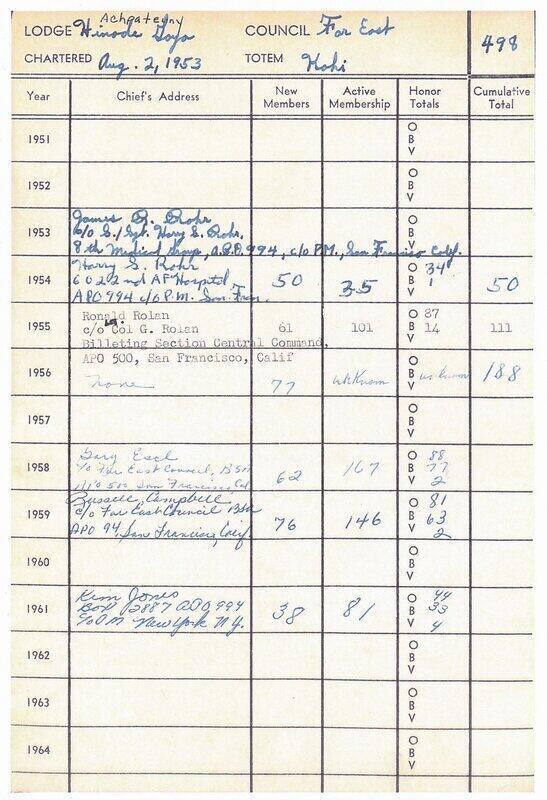 Achgateuny
LODGE Hinode Goya COUNCIL Far East 498
CHARTERED Aug. 2, 1953 TOTEM Kohi
Year Chief's Address New Members Active Membership Honor Totals Cumulative Total
1951 O B V
1952 O B V
James R. Rohr
1953 c/o S/Sgt. Harry S. Rohr, O B V
8th Medical Group, A.P.O. 994, c/o P.M., San Francisco Calif.
Harry S. Rohr O 34
1954 6022nd AF Hospital 50 35 B 1 50
APO 994 c/o P.M. San Fran. V
Ronald Rolan O 87
1955 c/o Lt. Col G. Rolan 61 101 B 14 111
Billeting Section Central Command, V
APO 500, San Francisco, Calif
1956 None 77 unknown O B unknown V 188
1957 O B V
Gary Esel O 88
1958 c/o Far East Council, BSA 62 167 B 77
APO 500 San Francisco, Cal V 2
Russell Campbell O 81
1959 c/o Far East Council BSA 76 146 B 63
APO 94, San Francisco, Calif. V 2
1960 O B V
Kim Jones O 44
1961 Box 2887 APO 994 38 81 B 33
c/o PM New York N.Y. V 4
1962 O B V
1963 O B V
1964 O B V